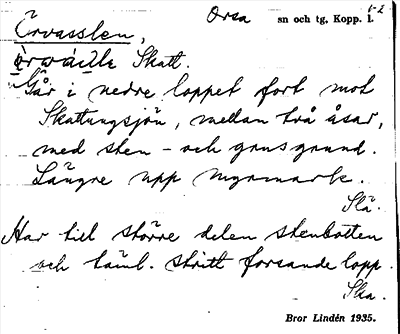 Orsa sn och tg, Kopp. l. 1-2
Örvasslen,
Skatt.
Går i nedre loppet fort mot
Skattungsjön, mellan två åsar,
med sten- och grusgrund.
Längre upp myrmark.
Slä.
Har till större delen stenbotten
och täml. stritt forsande lopp.
Ska.
Bror Lindén 1935.